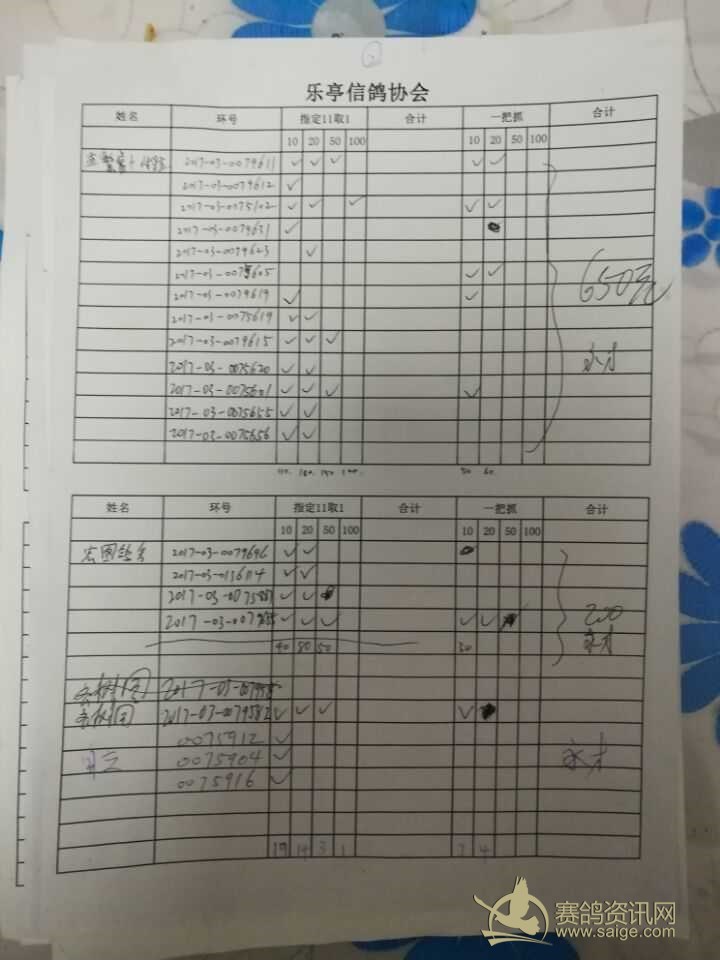 2
乐亭信鸽协会
姓名 环号 指定11取1 合计 一把抓 合计
10 20 50 100 10 20 50 100
2017-03-0079611 ✓ ✓ ✓ ✓ ✓
2017-03-0079612 ✓
2017-03-0075102 ✓ ✓ ✓ ✓ ✓
2017-03-0079631 ✓
2017-03-0079623 ✓
2017-03-0075605 ✓ ✓
2017-03-0079619 ✓ ✓
2017-03-0075619 ✓ ✓
2017-03-0079615 ✓ ✓ ✓
2017-03-0075620 ✓ ✓
2017-03-0075601 ✓ ✓ ✓ ✓
2017-03-0075655 ✓ ✓
2017-03-0075656 ✓ ✓
650元
姓名 环号 指定11取1 合计 一把抓 合计
10 20 50 100 10 20 50 100
2017-03-0079696 ✓ ✓
2017-03-0136114 ✓ ✓
2017-03-0075887 ✓ ✓
✓ ✓ ✓ ✓ ✓
200
40 80 50 30
2017-03-0079582 ✓ ✓ ✓ ✓
0075912 ✓
0075904 ✓
0075916 ✓
19 14 3 1 7 4
赛鸽资讯网
www.saige.com